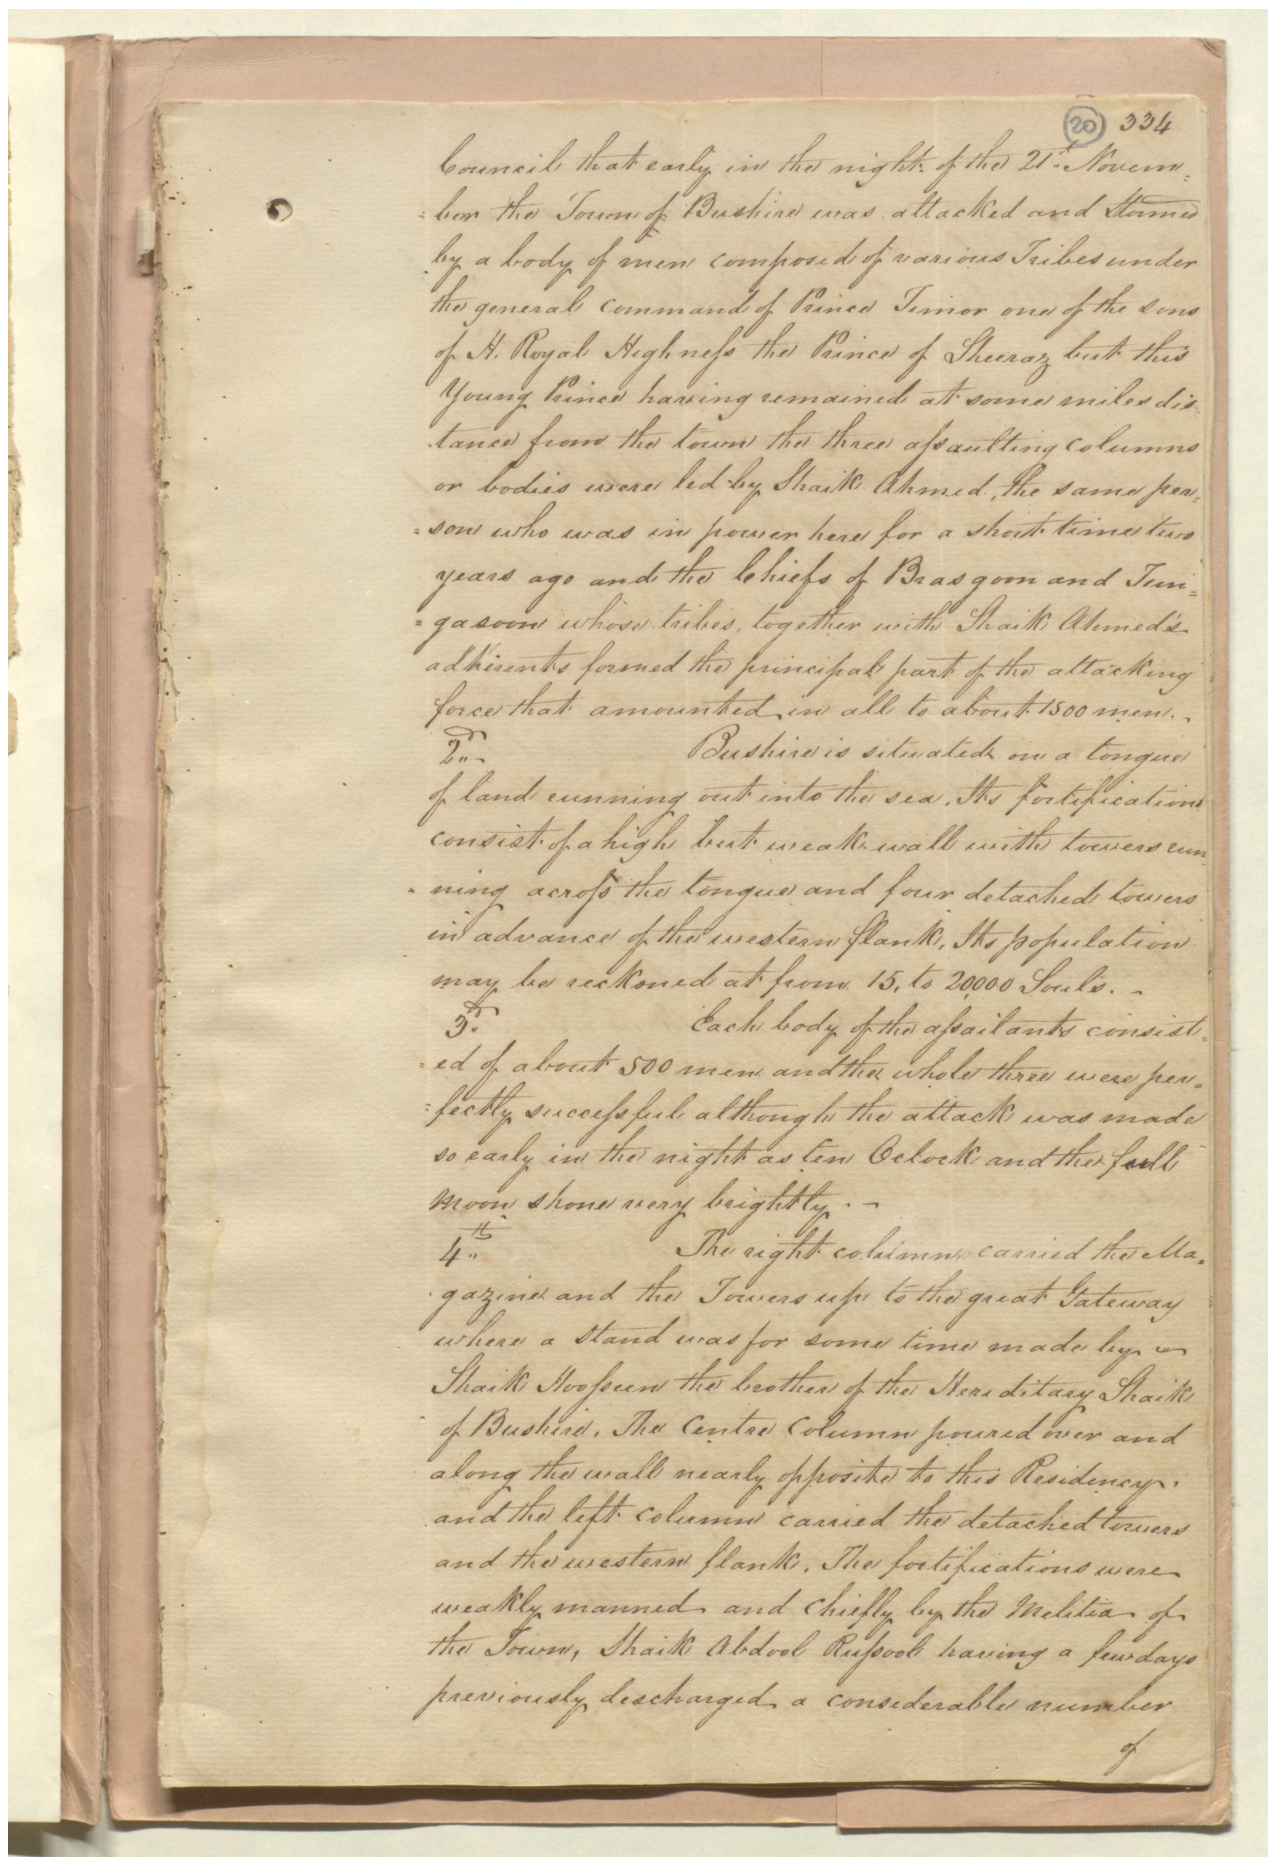 20 334
Council that early in the night of the 21st Novem=
=ber the Town of Bushire was attacked and Stormed
by a body of men composed of various Tribes under
the general command of Prince Timor one of the sons
of H. Royal Highness the Prince of Sheeraz but this
Young Prince having remained at some miles dis=
tance from the town the three assaulting columns
or bodies were led by Shaik Ahmed, the same per=
=son who was in power here for a short time two
years ago and the Chiefs of Brasgoon and Tun=
=gasoon whose tribes, together with Shaik Ahmed's
adherents formed the principal part of the attacking
force that amounted in all to about 1500 men. -
2d Bushire is situated on a tongue
of land running out into the sea. Its fortifications
consist of a high but weak wall with towers run
ning across the tongue and four detached towers
in advance of the western flank. Its population
may be reckoned at from 15, to 20,000 Souls. -
3d Each body of the assailants consist=
=ed of about 500 men and the whole three were per=
=fectly successful although the attack was made
so early in the night as ten Oclock and the full
moon shone very brightly. -
4th The right column carried the Ma=
gazine and the Towers up to the great Gateway
where a stand was for some time made by
Shaik Hoossein the brother of the Hereditary Shaik
of Bushire. The Centre Column poured over and
along the wall nearly opposite to this Residency.
and the left column carried the detached towers
and the western flank. The fortifications were
weakly manned and chiefly by the Melitia of
the Town, Shaik Abdool Russool having a few days
previously descharged a considerable number
of